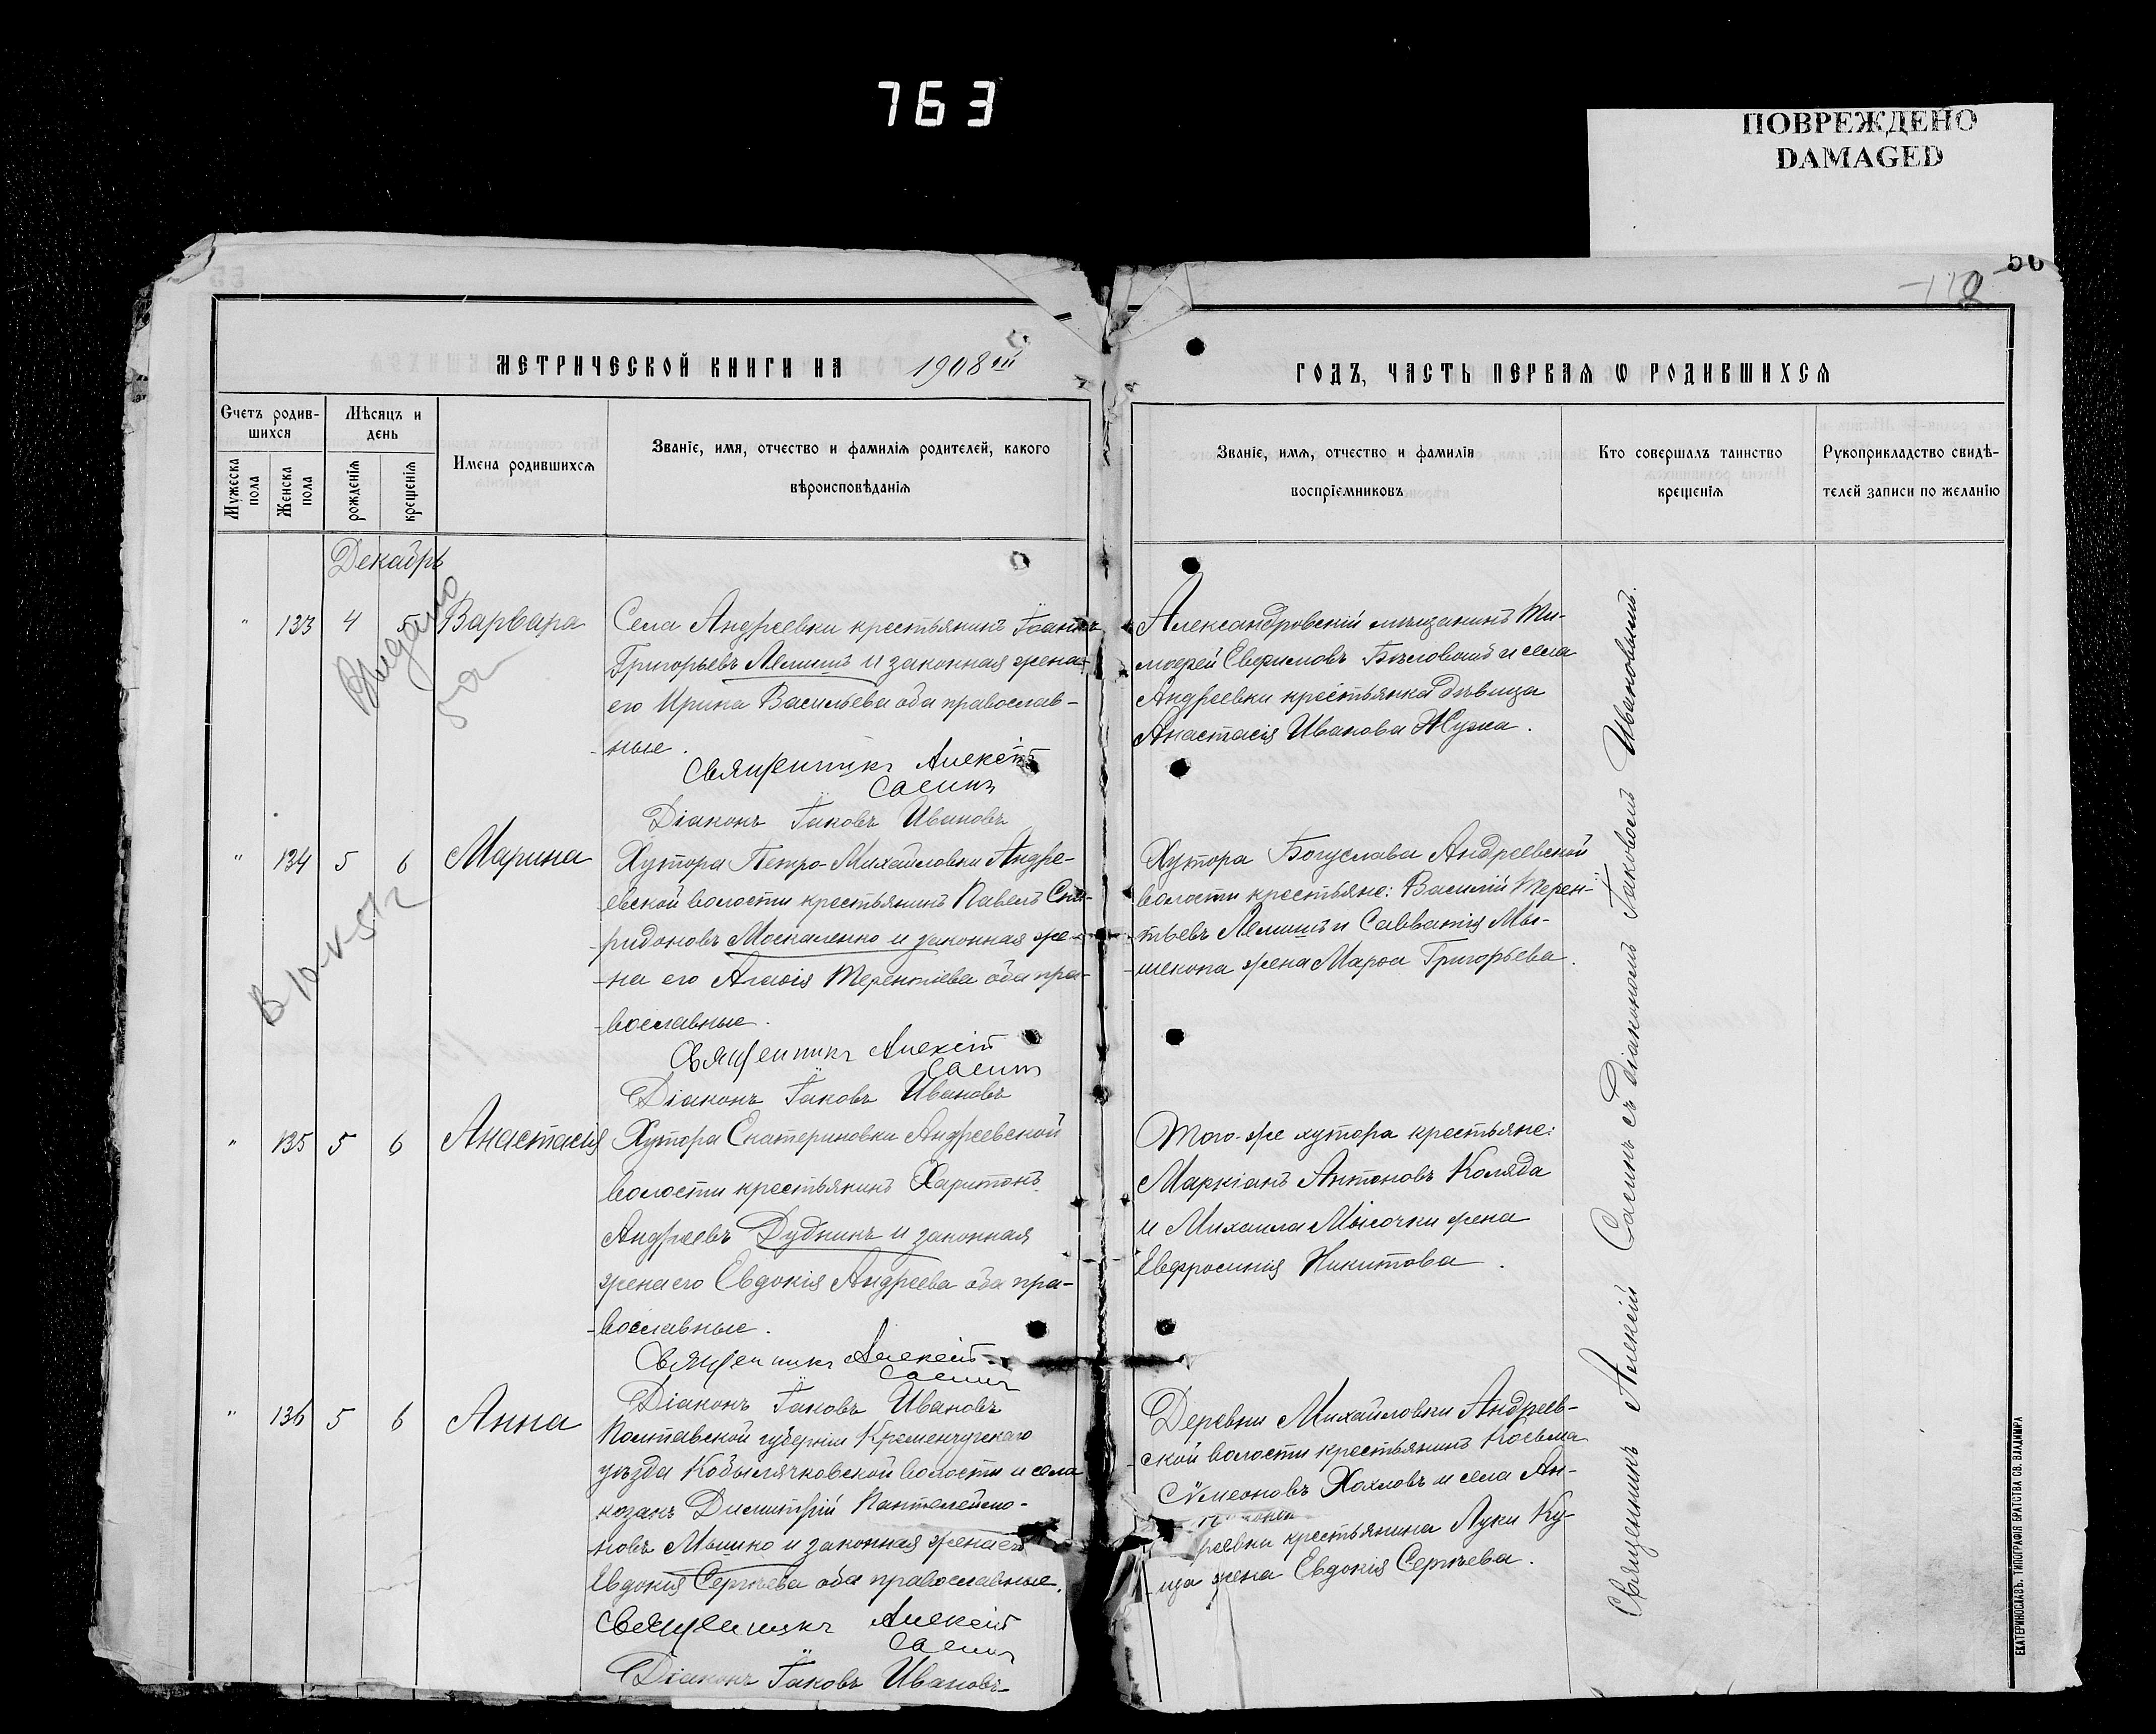 763
ПОВРЕЖДЕНО
DAMAGED
50
МЕТРИЧЕСКОЙ КНИГИ НА 1908 ой
ГОДЪ, ЧАСТЬ ПЕРВАЯ Ѡ РОДИВШИХСЯ
Счетъ родив-
шихся
Мѣсяцъ и
день
Мужеска
пола
Женска
пола
рожденія
крещенія
Имена родившихся
Званіе, имя, отчество и фамилія родителей, какого
вѣроисповѣданія
Званіе, имя, отчество и фамилія
воспріемниковъ
Кто совершалъ таинство
крещенія
Рукоприкладство свидѣ-
телей записи по желанію
Декабрь
" 133 4 5 Варвара
Села Андреевки крестьянинъ Іоаннъ
Григорьевъ Лемишъ и законная жена
его Ирина Васильева оба православ-
ные.
Священникъ Алексій
Сасинъ
Діаконъ Іаковъ Ивановъ
Александровскій мѣщанинъ Ти-
мофей Евфимовъ и села
Андреевки крестьянка дѣвица
Анастасія Иванова
Выдано
" 134 5 6 Марина
Хутора Петро-Михайловки Андре-
евской волости крестьянинъ Павелъ Спи-
ридоновъ Москаленко и законная же-
на его Агафія Терентіева оба пра-
вославные.
Священникъ Алексій
Сасинъ
Діаконъ Іаковъ Ивановъ
Хутора Богуслава Андреевской
волости крестьяне: Василій Терен-
тьевъ Лемишъ и Савватія Мы-
шекопа жена Марфа Григорьева.
" 135 5 6 Анастасія
Хутора Екатериновки Андреевской
волости крестьянинъ Харитонъ
Андреевъ Дудкинъ и законная
жена его Евдокія Андреева оба пра-
вославные.
Священникъ Алексій
Сасинъ
Діаконъ Іаковъ Ивановъ
Того-же хутора крестьяне:
Маркіанъ Антоновъ Коляда
и Михаила Мысочки жена
Евфросинія Никитова.
" 136 5 6 Анна
Полтавской губерніи Кременчугскаго
уѣзда Кобылячковской волости и села
козакъ Димитрій Пантелеймо-
новъ Мышко и законная жена его
Евдокія Сергѣева оба православные.
Священникъ Алексій
Сасинъ
Діаконъ Іаковъ Ивановъ
Деревни Михайловки Андреев-
ской волости крестьянинъ Косьма
Сѵмеоновъ Хохловъ и села Ан-
реевки крестьянина Луки Ку-
ца жена Евдокія Сергѣева.
Священникъ Алексій Сасинъ съ Діакономъ Іаковомъ Ивановымъ.
ЕКАТЕРИНОСЛАВЪ. ТИПОГРАФІЯ БРАТСТВА СВ. ВЛАДИМІРА